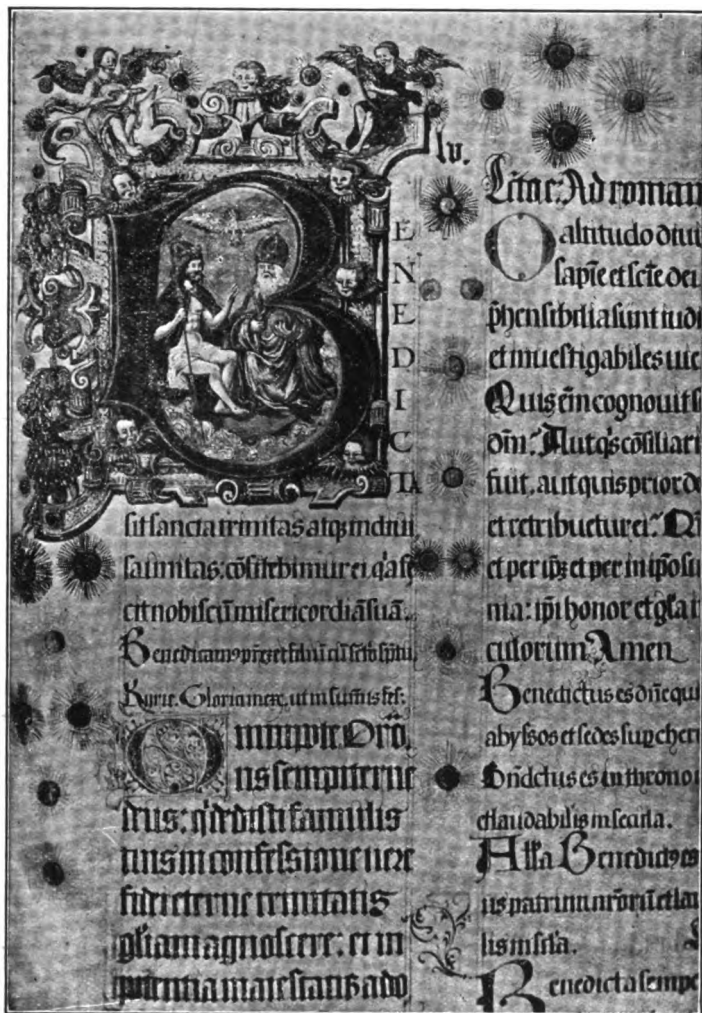 BENEDICTA
sit sancta trinitas atqȝ indiui
sa unitas: cōfitebimur ei q'a fe
cit nobiscū misericordiā suā.
Benedicamꝰ prēȝ et filiū cū scto spūtu
Kyrie. Gloria in exc. ut in sum̄is fes.
Omnipote Orō.
ns sempiterne
deus: q' dedisti famulis
tuis in confessione uere
fidei eterne trinitatis
gl̄iam agnoscere: et in
potentia maiestatis ado
lv.
Ad roman
O altitudo diui
sapīe et sctē dei
p̄hensibilia sunt iudi
et inuestigabiles uie
Quis em̄ cognouit s
dn̄i: Aut q's cōsiliari
fuit, aut quis prior de
et retribuetur ei:
et per ip̄ȝ et per in ip̄o su
nia: ip̄i honor et gl̄a i
culorum Amen
Benedictus es dn̄e qui
abyssos et sedes sup cheru
Bn̄dctus es in throno
et laudabilis in secula.
All'a Benedictꝰ es
us patrum nr̄orū et lau
lis in scl̄a.
Benedicta sempe